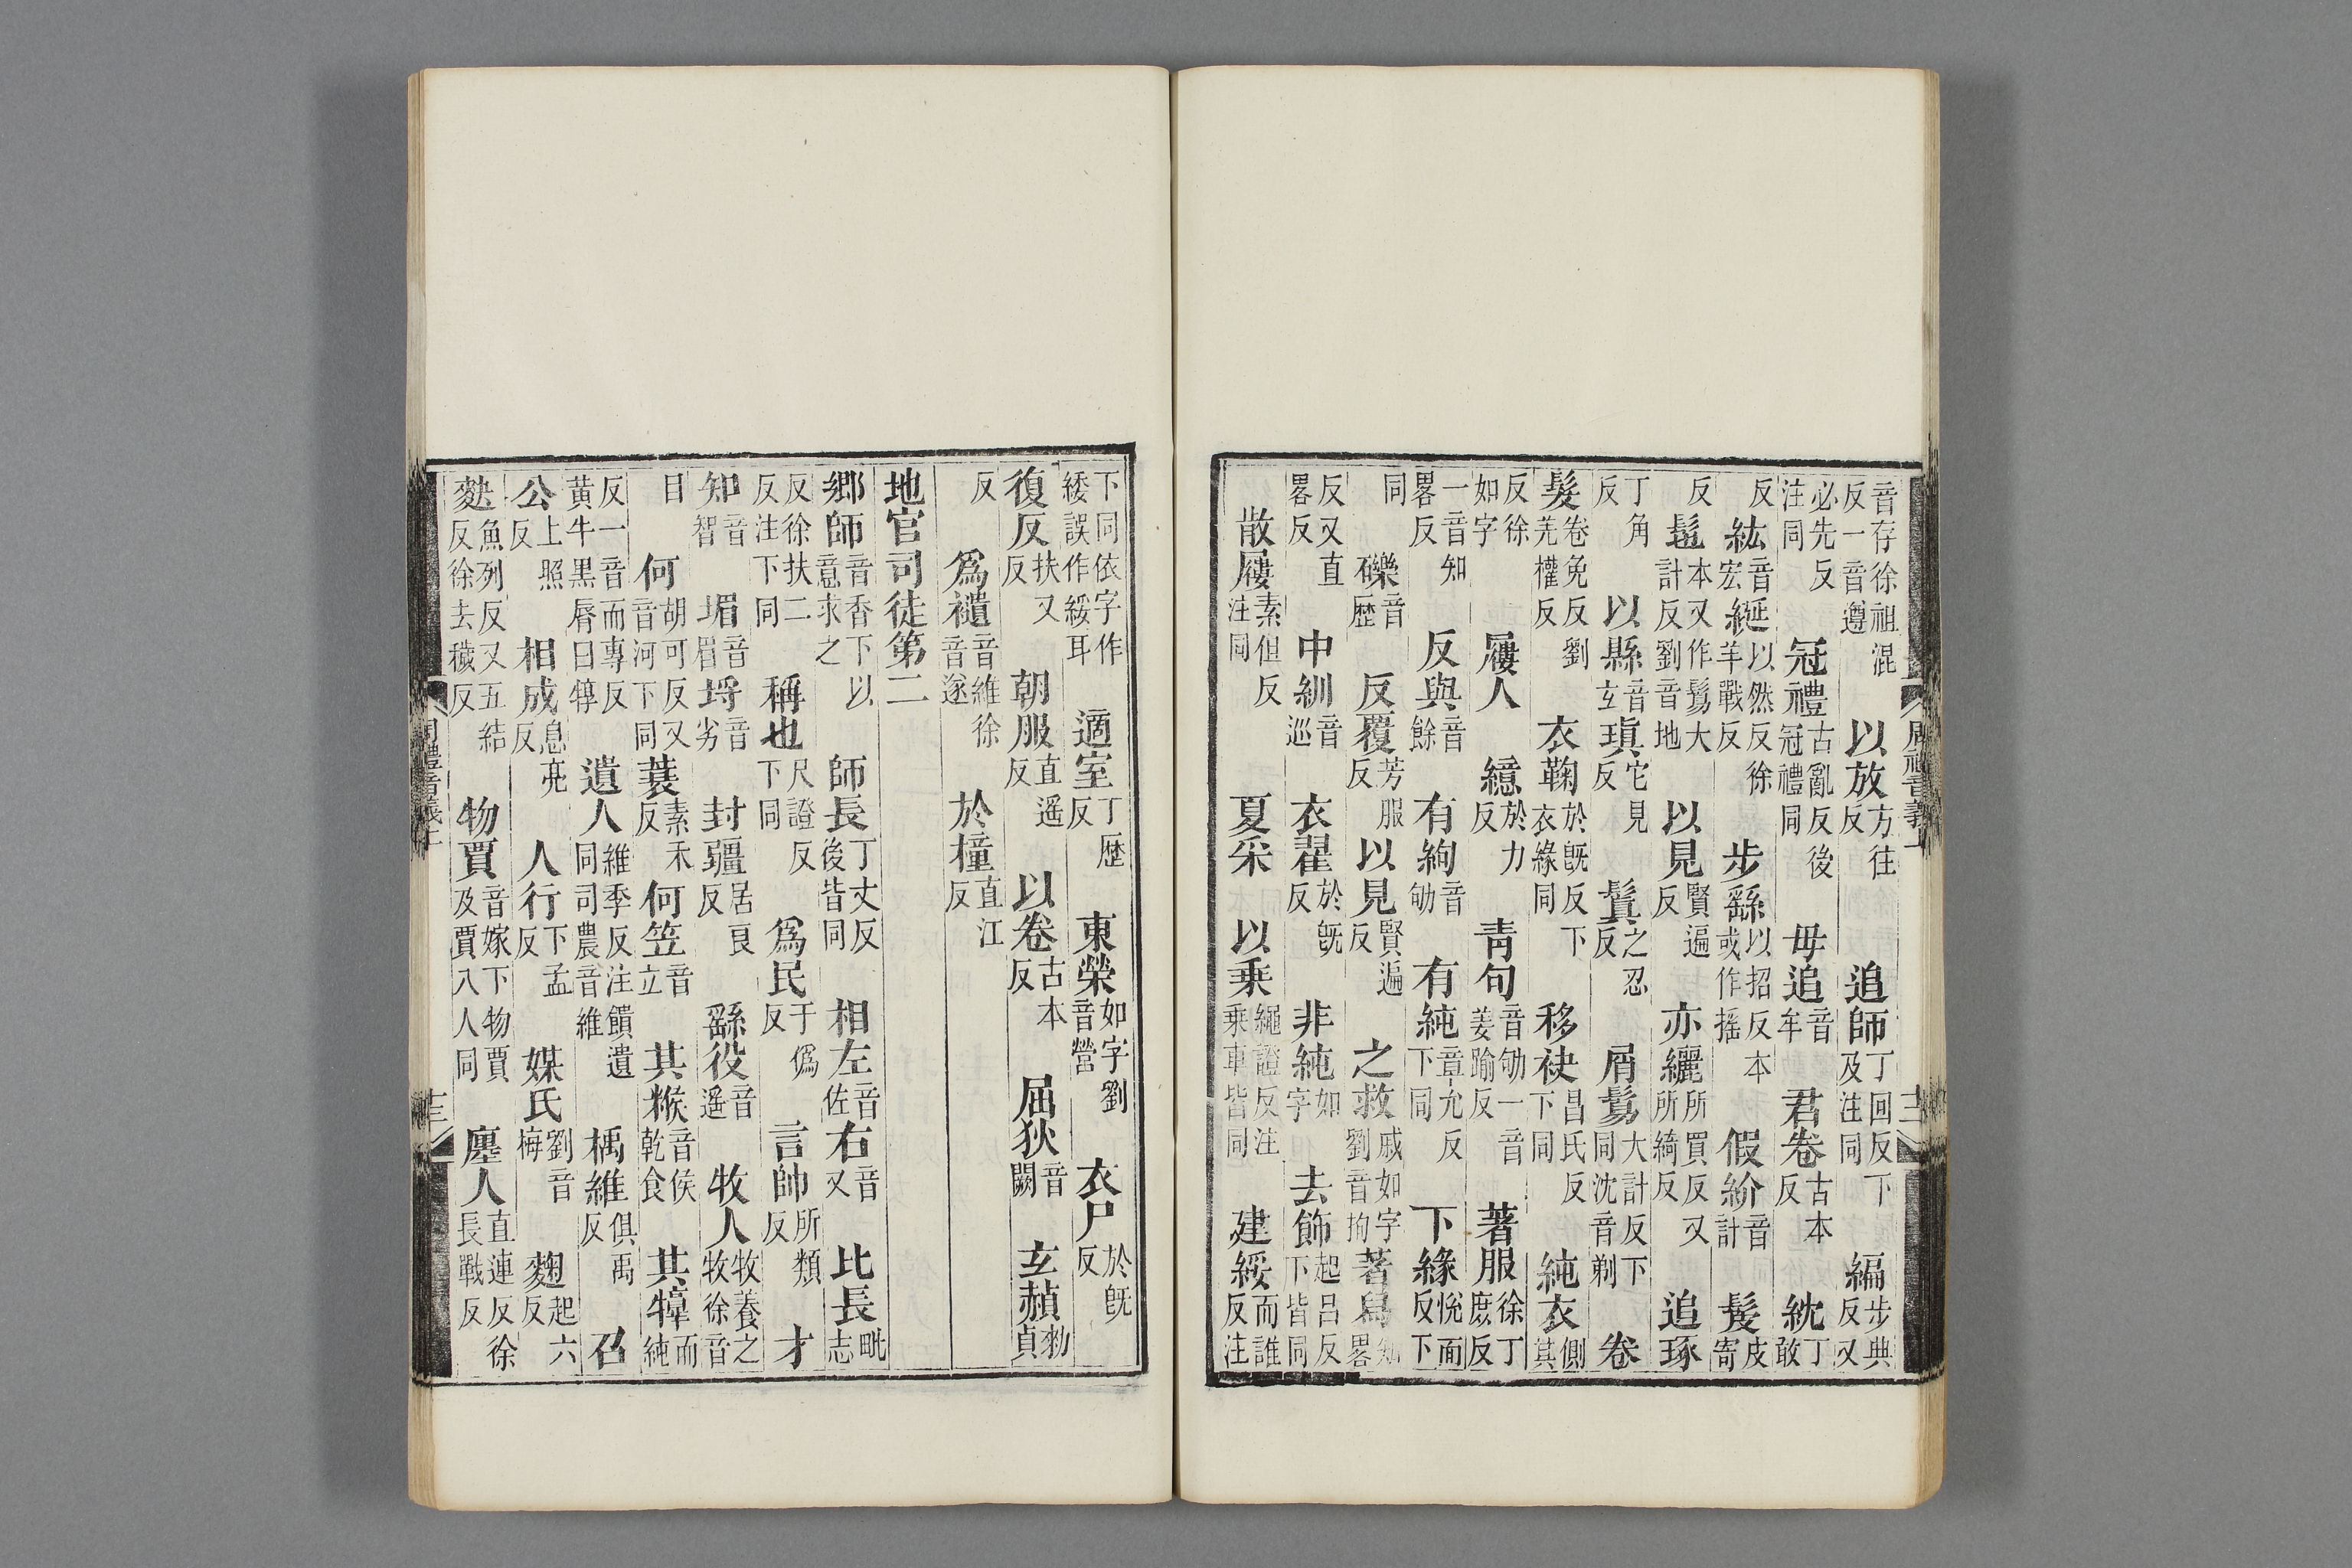 音存徐祖混反一音遵 以放方往反 追師丁回反下及注同 編步典反又
必先反注同 冠禮古亂反後冠禮同 毋追音牟 君卷古本反 紞丁敢
反 紘音宏 綖以然反徐羊戰反 步繇以招反本或作搖 假紒音計 髲皮寄
反 髢本又作鬄大計反劉音地 以見賢遍反 亦纚所買反又所綺反 追琢
丁角反 以縣音玄 瑱它見反 鬒之忍反 屑鬄大計反下同沈音剃 卷
髮卷免反劉羌權反 衣鞠於旣反下衣緣同 移袂昌氏反下同 純衣側其
反徐如字 屨人 繶於力反 靑句音劬一音姜踰反 著服徐丁庶反
一音知畧反 反與音餘 有絇音劬 有純章允反下同 下緣恱面反下
同 礫音歷 反覆芳服反 以見賢遍反 之救戚如字劉音拘 著舄知畧
反又直畧反 中紃音巡 衣翟於旣反 非純如字 去飾起呂反下皆同
散屨素但反注同 夏采 以乘繩證反注乘車皆同 建綏而誰反注
周禮音義上
十二
下同依字作緌誤作綏耳 適室丁歷反 東榮如字劉音營 衣尸於旣反
復反扶又反 朝服直遥反 以卷古本反 屈狄音闕 玄赬勑貞
反 爲禭音維徐音遂 於橦直江反
地官司徒第二
鄉師音香下以意求之 師長丁丈反後皆同 相左音佐 右音又 比長毗志
反徐扶二反注下同 稱也尺證反下同 爲民于僞反 言帥所類反 才
知音智 堳音眉 埒音劣 封疆居良反 繇役音遥 牧人牧養之牧徐音
目 何胡可反又音河下同 蓑素禾反 何笠音立 其糇音侯乾食 其犉而純
反一音而專反黃牛黑脣曰犉 遺人維季反注饋遺同司農音維 楀維俱禹反 召
公上照反 相成息亮反 人行下孟反 媒氏劉音梅 麴起六反
麩魚列反又五結反徐去穢反 物賈音嫁下物賈及賈人同 廛人直連反徐長戰反
周禮音義上
十三